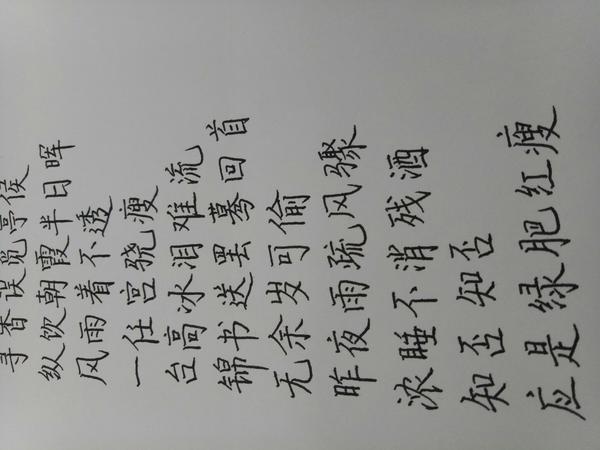 寻香误觅亭侯
纵饮朝霞半日晖
风雨着不透
一任宫骁瘦
台高冰泪难流
锦书送罢蓦回首
无余岁可偷
昨夜雨疏风骤
浓睡不消残酒
知否知否
应是绿肥红瘦